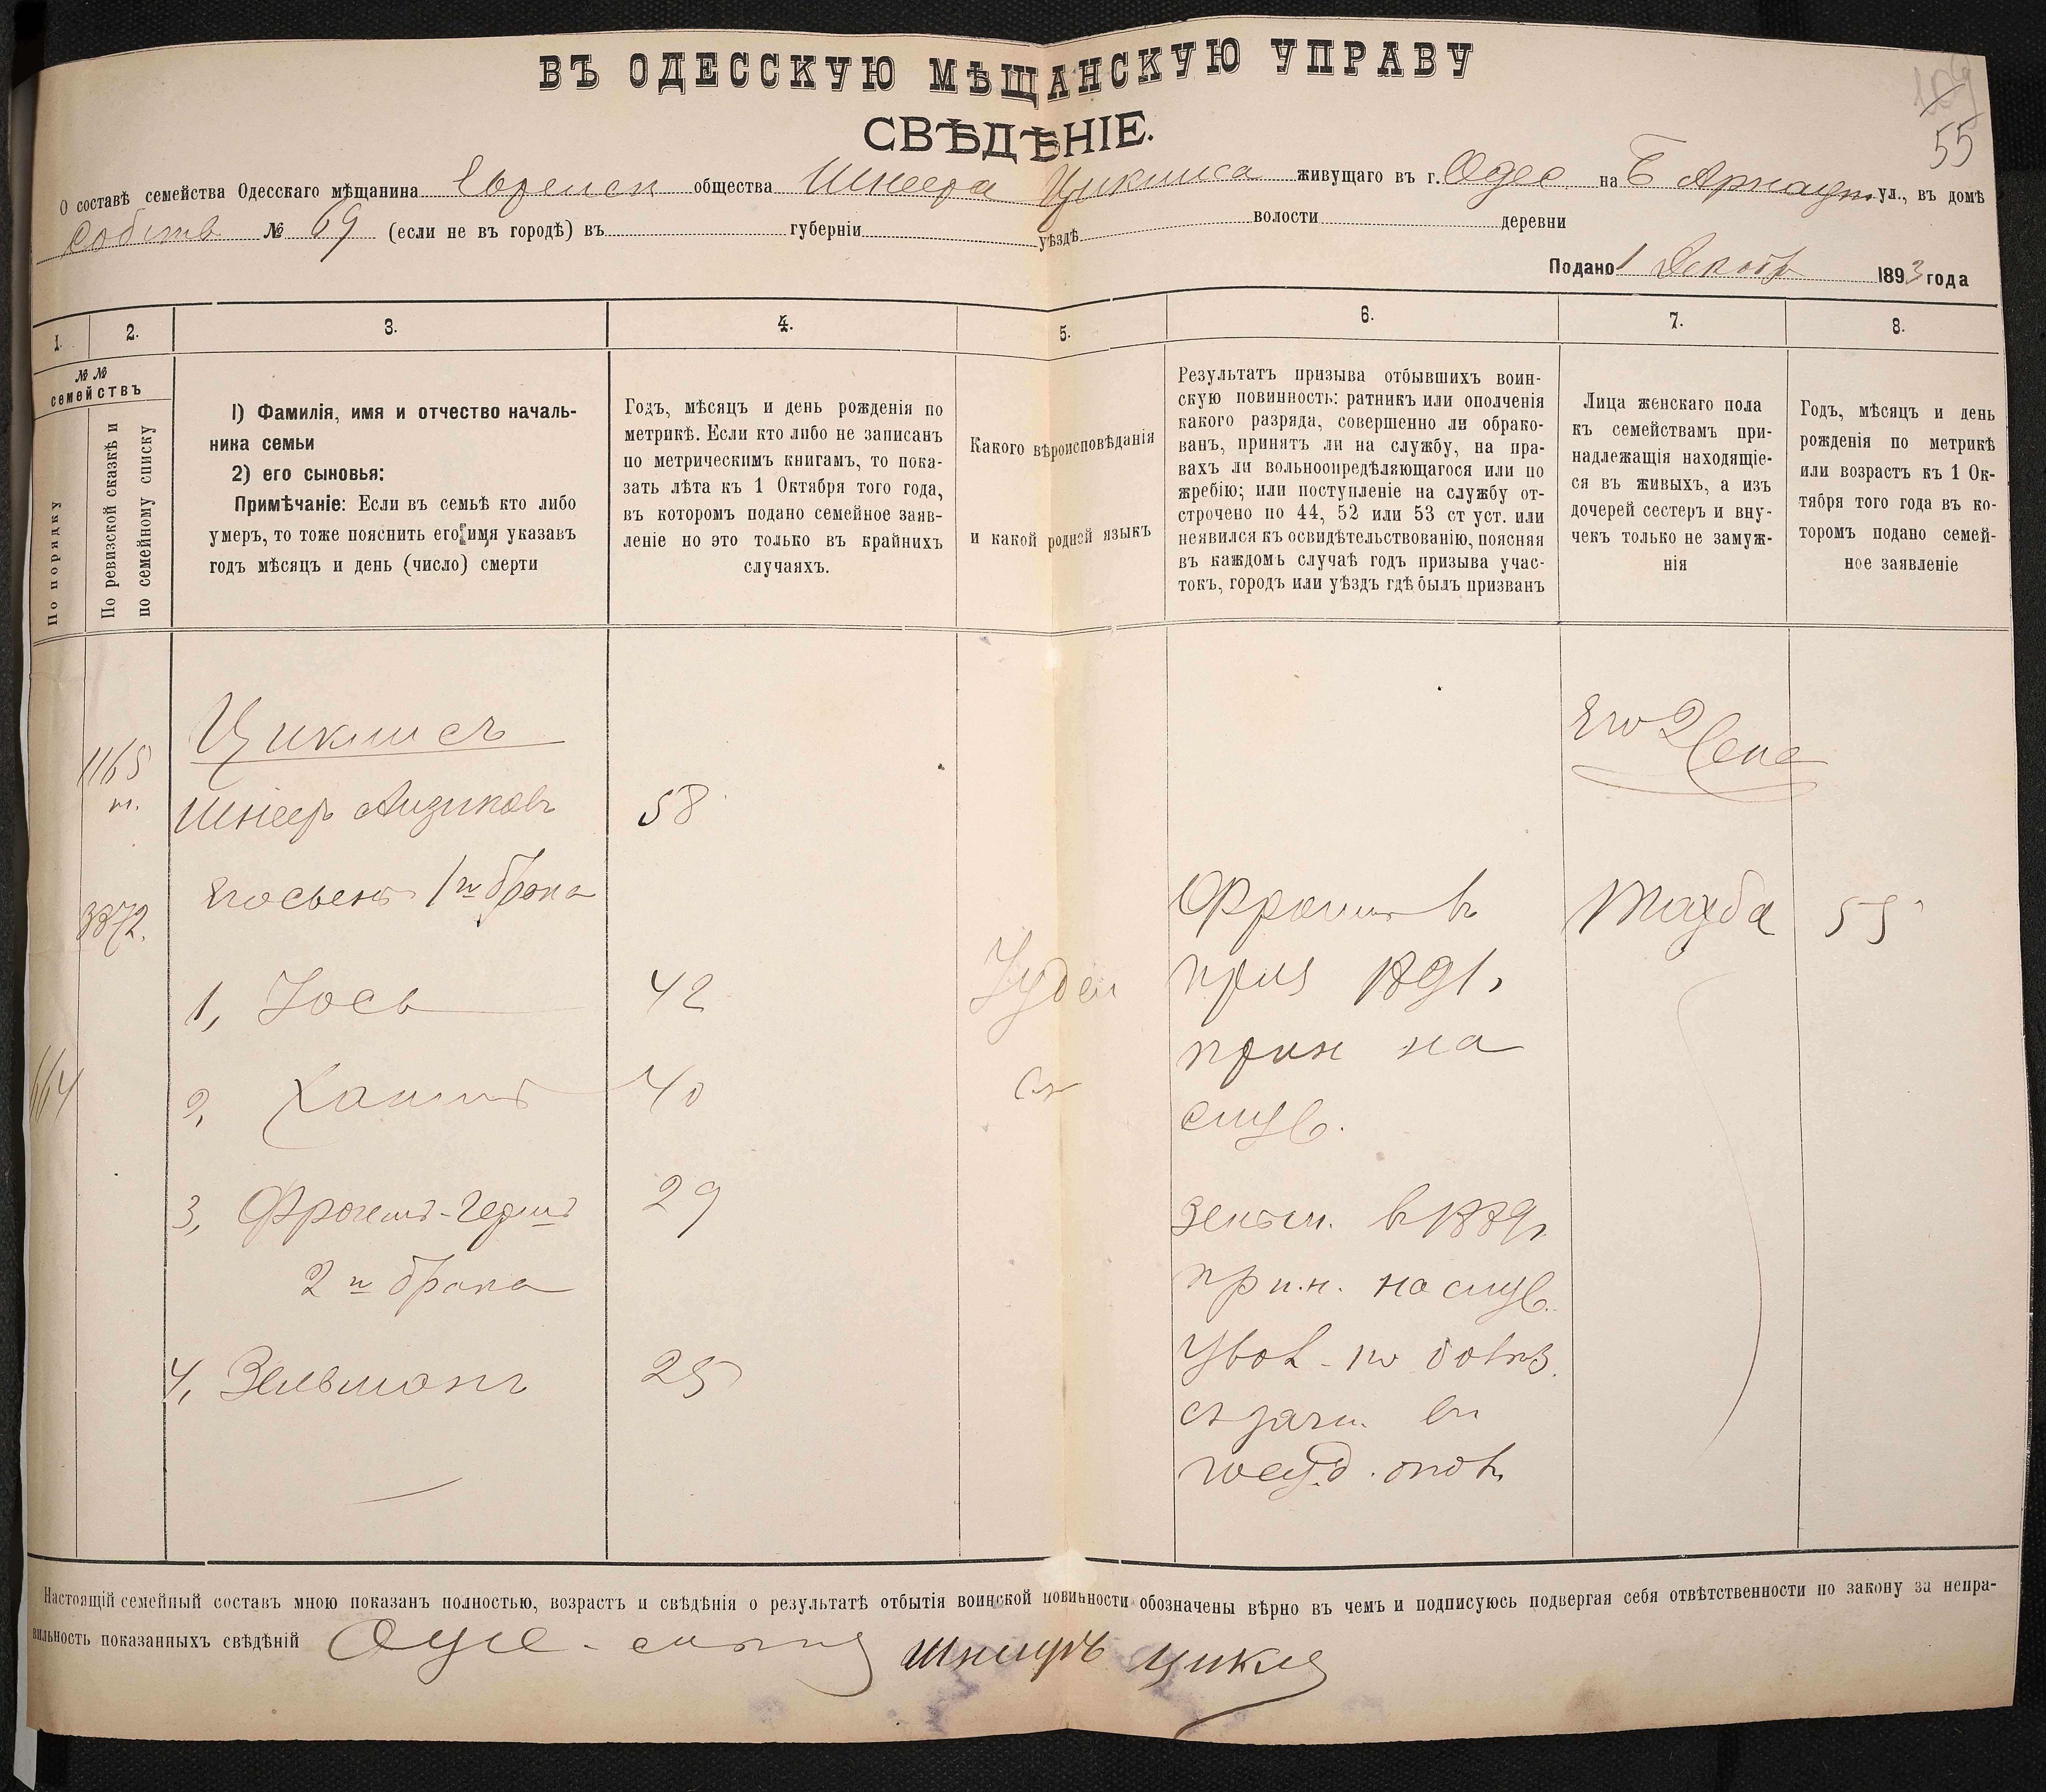 ВЪ ОДЕССКУЮ МѢЩАНСКУЮ УПРАВУ
СВѢДѢНІЕ.
55
О составѣ семейства Одесскаго мѣщанина Евр общества Шнеера Циклиса живущаго въ г. Одес на Б Арнаут ул., въ домѣ
Собств № 69 (если не въ городѣ) въ губерніи уѣздѣ волости деревни
Подано 1 Декабр 1893 года
1. 2. 3. 4. 5. 6. 7. 8.
№ №
семействъ
По порядку
По ревизской сказкѣ и
по семейному списку
I) Фамилія, имя и отчество началь-
ника семьи
2) его сыновья:
Примѣчаніе: Если въ семьѣ кто либо
умеръ, то тоже пояснить его имя указавъ
годъ мѣсяцъ и день (число) смерти
Годъ, мѣсяцъ и день рожденія по
метрикѣ. Если кто либо не записанъ
по метрическимъ книгамъ, то пока-
зать лѣта къ 1 Октября того года,
въ которомъ подано семейное заяв-
леніе но это только въ крайнихъ
случаяхъ.
Какого вѣроисповѣданія
и какой родной языкъ
Результатъ призыва отбывшихъ воин-
скую повинность: ратникъ или ополченія
какого разряда, совершенно ли обрако-
ванъ, принятъ ли на службу, на пра-
вахъ ли вольноопредѣляющагося или по
жребію; или поступленіе на службу от-
строчено по 44, 52 или 53 ст уст. или
неявился къ освидѣтельствованію, поясняя
въ каждомъ случаѣ годъ призыва учас-
токъ, городъ или уѣздъ гдѣ былъ призванъ
Лица женскаго пола
къ семействамъ при-
надлежащія находящіе-
ся въ живыхъ, а изъ
дочерей сестеръ и вну-
чекъ только не замуж-
нія
Годъ, мѣсяцъ и день
рожденія по метрикѣ
или возрастъ къ 1 Ок-
тября того года въ ко-
торомъ подано семей-
ное заявленіе
Циклисъ
Его Жена
1165
м.
Шнеер Айзиковъ 58
Его сыен 1го брака
3872.
Фроим въ
Тауба 55
1, Йось 42 Іудей приз 1891,
прин на
664
2, Хаимъ 40
служ.
3, Фроимъ-Герш 29 Зельм. в 1889г
2го брака прин. на служ.
4, Зельманъ 25 Увол. по болѣз.
съ зачи. въ
госуд. опол.
Настоящій семейный составъ мною показанъ полностью, возрастъ и свѣдѣнія о результатѣ отбытія воинской повинности обозначены вѣрно въ чемъ и подписуюсь подвергая себя отвѣтственности по закону за непра-
вильность показанныхъ свѣдѣній Шнеиръ Цикли